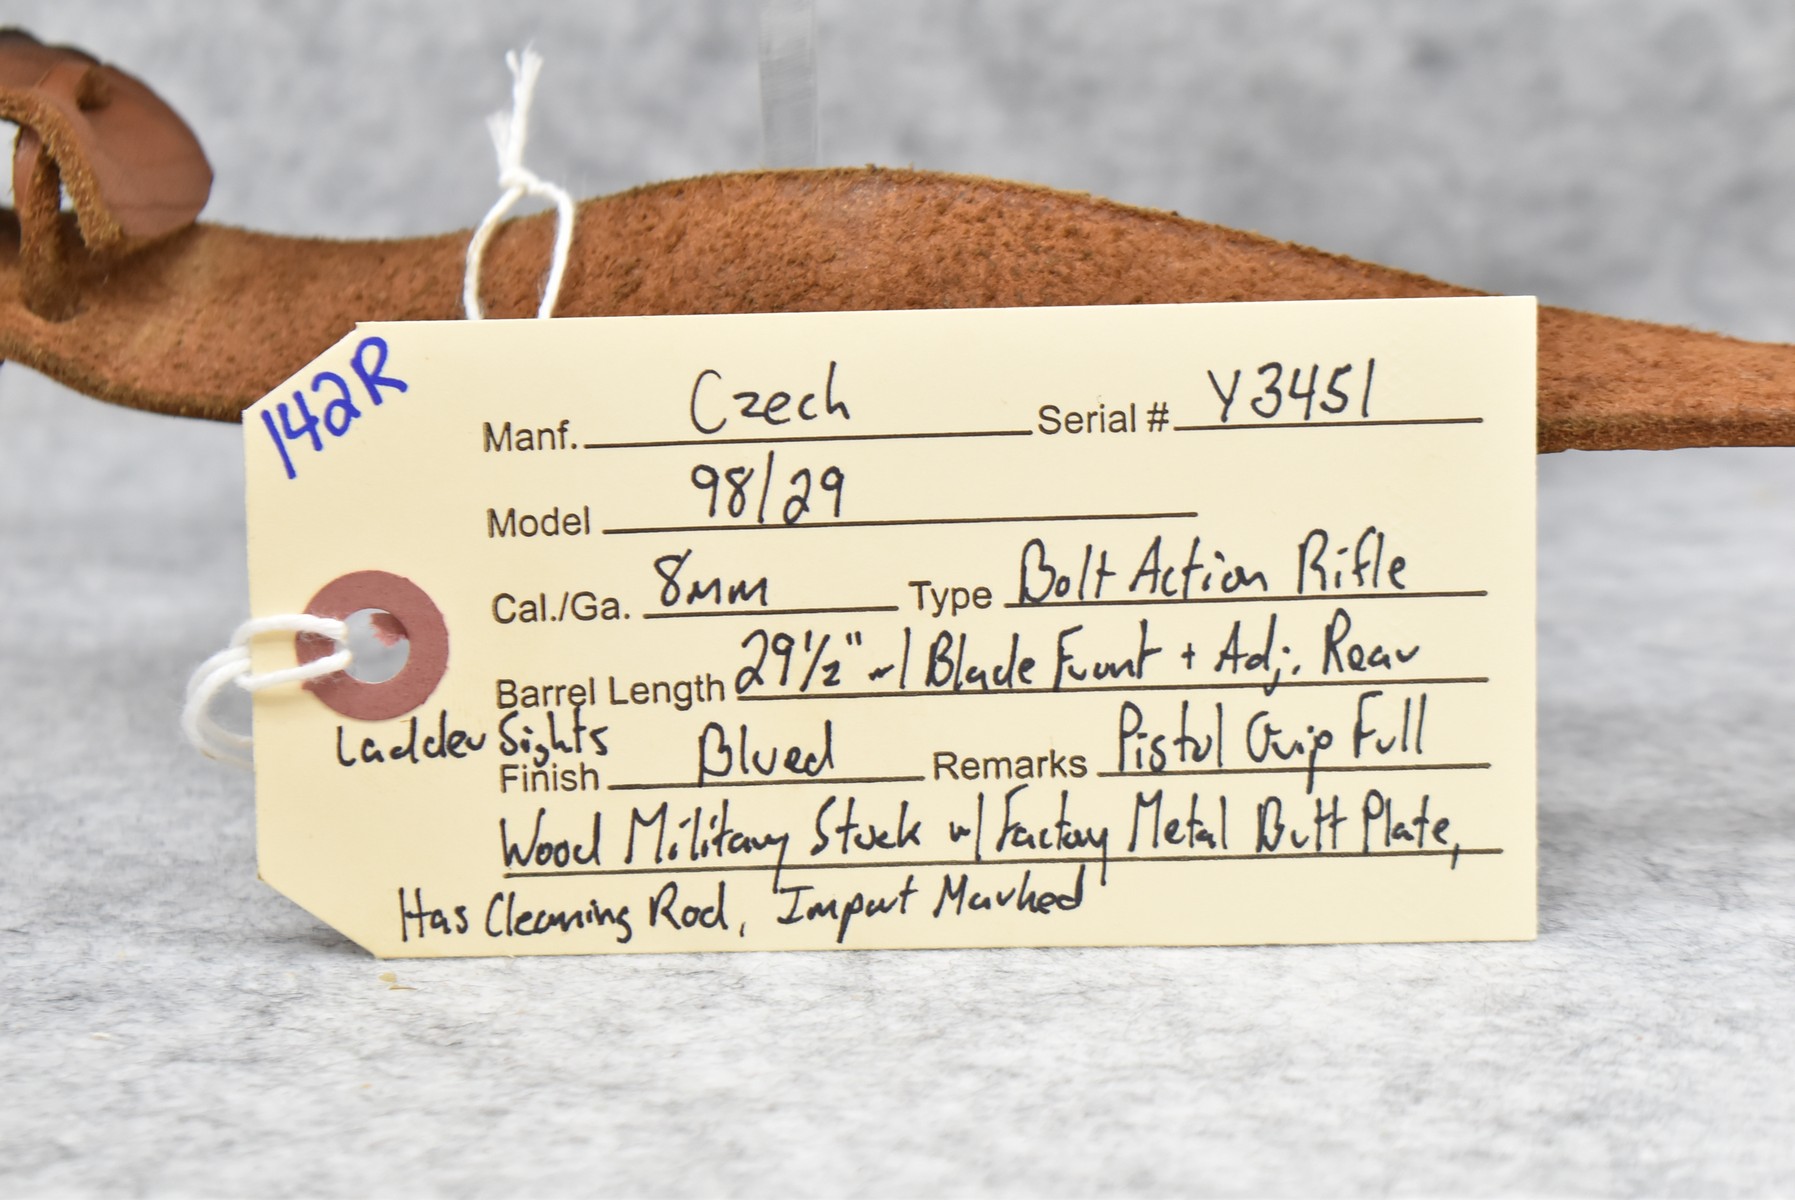 142R
Manf. Czech Serial # Y3451
Model 98/29
Cal./Ga. 8mm Type Bolt Action Rifle
Barrel Length 29 1/2" w/ Blade Front + Adj. Rear
Ladder Sights
Finish Blued Remarks Pistol Grip Full
Wood Military Stock w/ Factory Metal Butt Plate,
Has Cleaning Rod, Import Marked